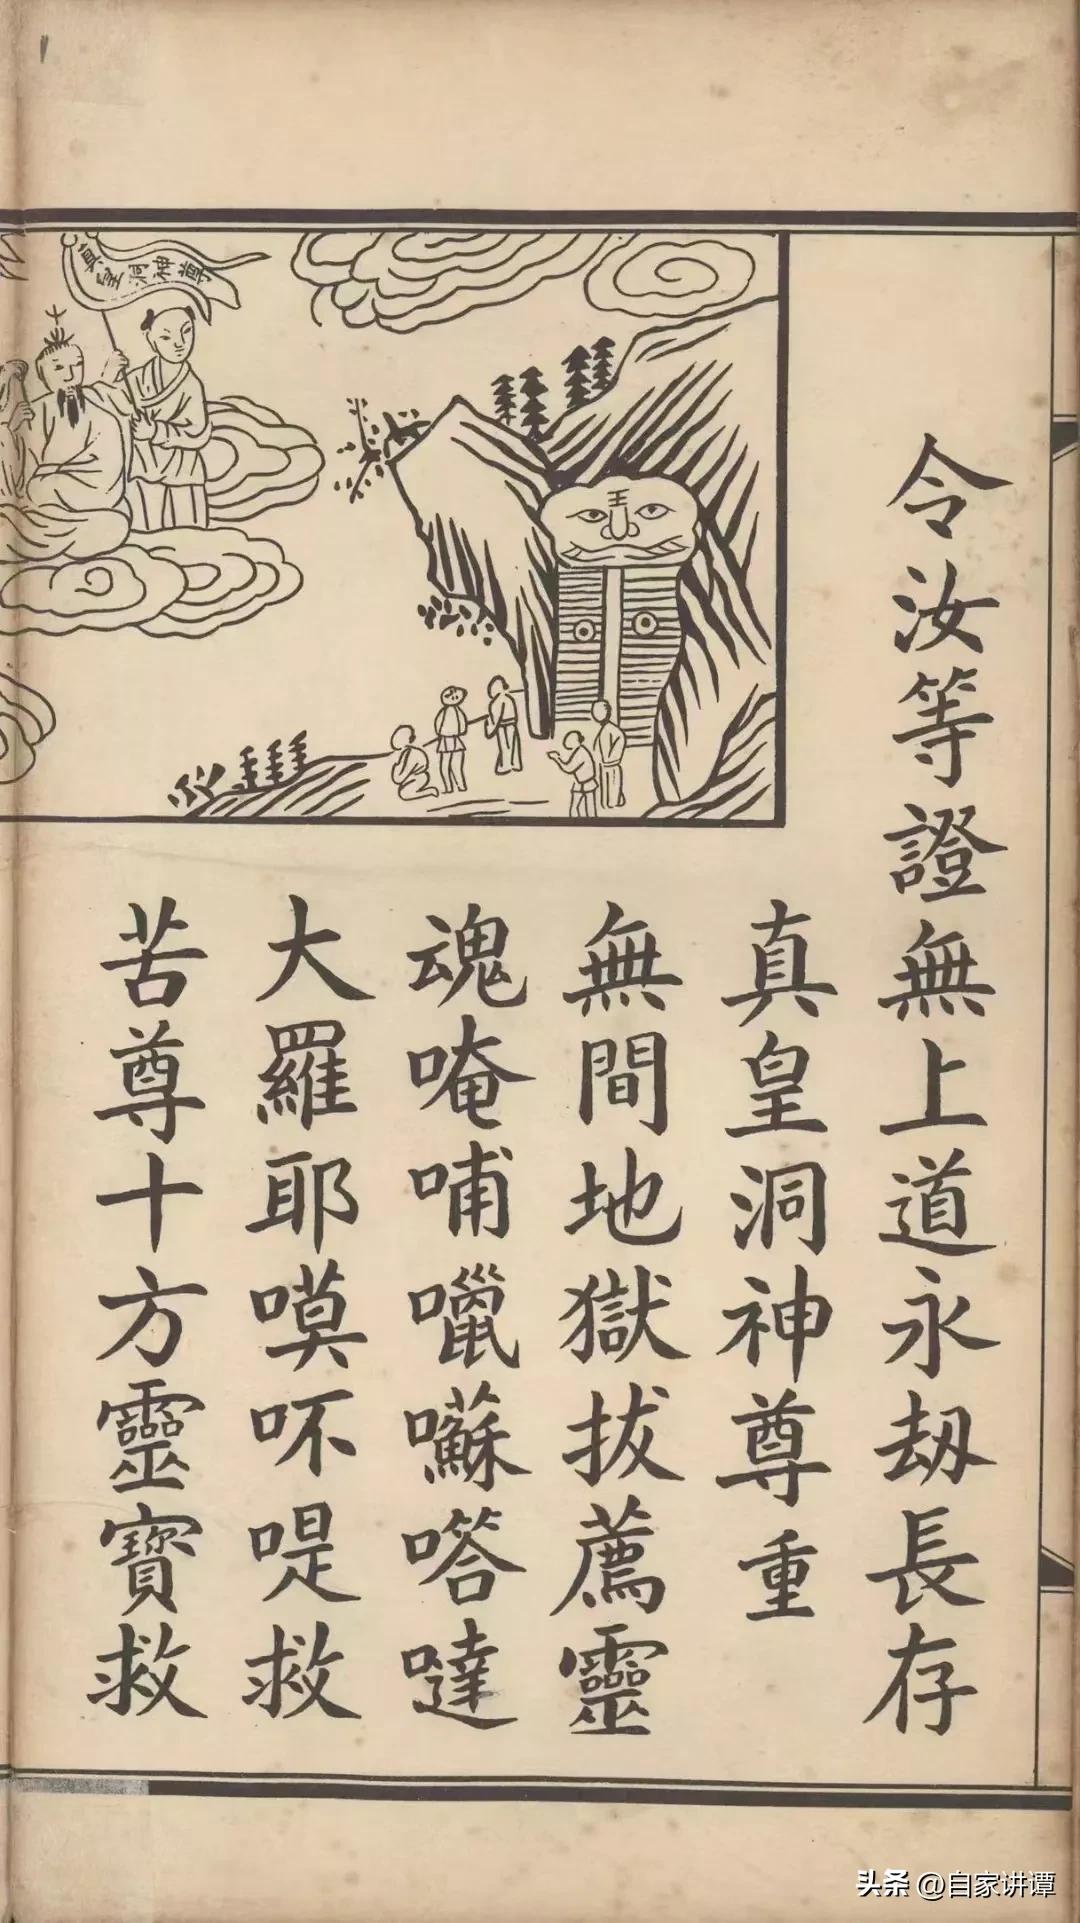 令汝等證無上道永劫長存
真皇洞神尊
真皇洞神尊重
無間地獄拔薦靈
魂唵哺囌嗒噠
大羅耶嗼吥救
苦尊十方靈寶救
王
头条 @自家讲谭